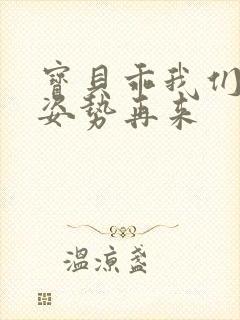 寳貝乖我们
姿势再来
温凉盏